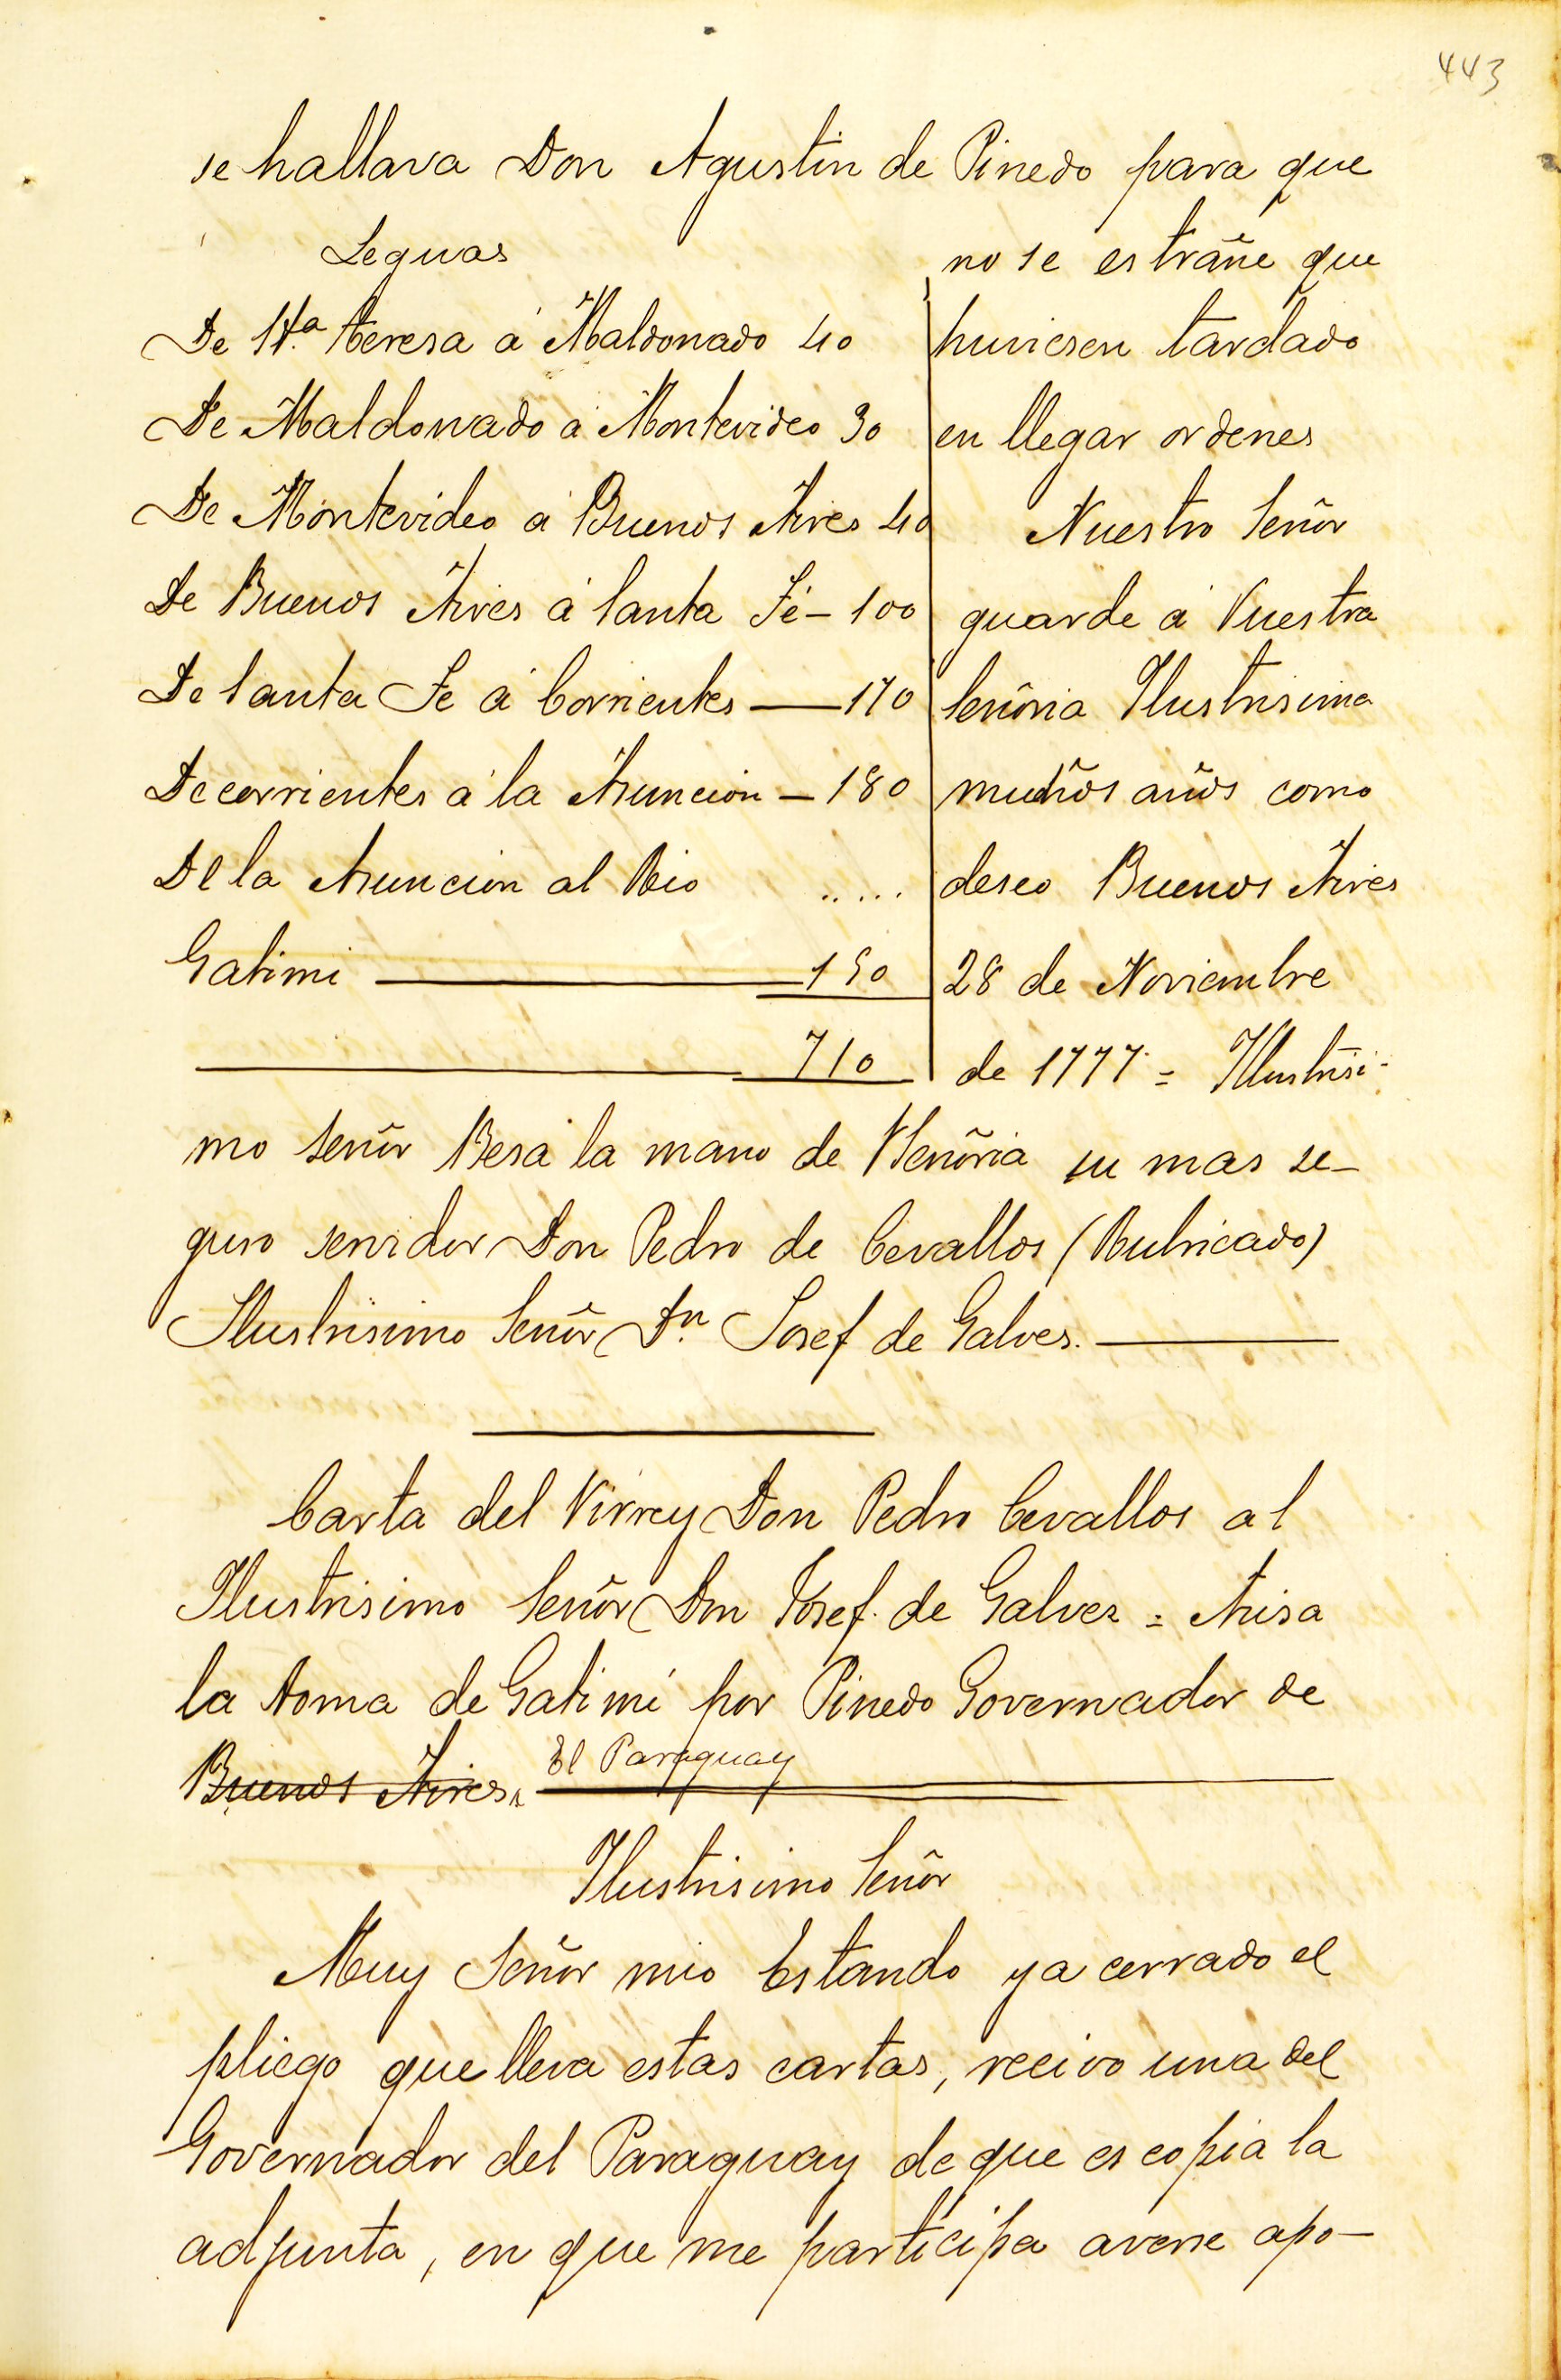 443
se hallava Don Agustin de Pinedo para que
Leguas
De Sta. Teresa á Maldonado 40
De Maldonado á Montevideo 30
De Montevideo á Buenos Aires 40
De Buenos Aires á Santa Fé - 100
De Santa Fe á Corrientes — 170
De corrientes á la Asuncion - 180
De la Asuncion al Rio .....
Gatimi — 150
710
no se estrañe que
huviesen tardado
en llegar ordenes
Nuestro Señor
guarde á Vuestra
Señoria Ilustrisima
muchos años como
deseo Buenos Aires
28 de Noviembre
de 1777 = Illustrisi-
mo Señor Besa la mano de VSeñoria su mas se-
guro servidor Don Pedro de Cevallos (Rubricado)
Ilustrisimo Señor Dn. Josef de Galves. —
Carta del Virrey Don Pedro Cevallos al
Ilustrisimo Señor Don Josef. de Galvez = Avisa
la toma de Gatimí por Pinedo Governador de
Buenos Aires, El Paraguay
Ilustrisimo Señor
Muy Señor mio Estando ya cerrado el
pliego que lleva estas cartas, recivo una del
Governador del Paraguay de que es copia la
adjunta, en que me participa averse apo-